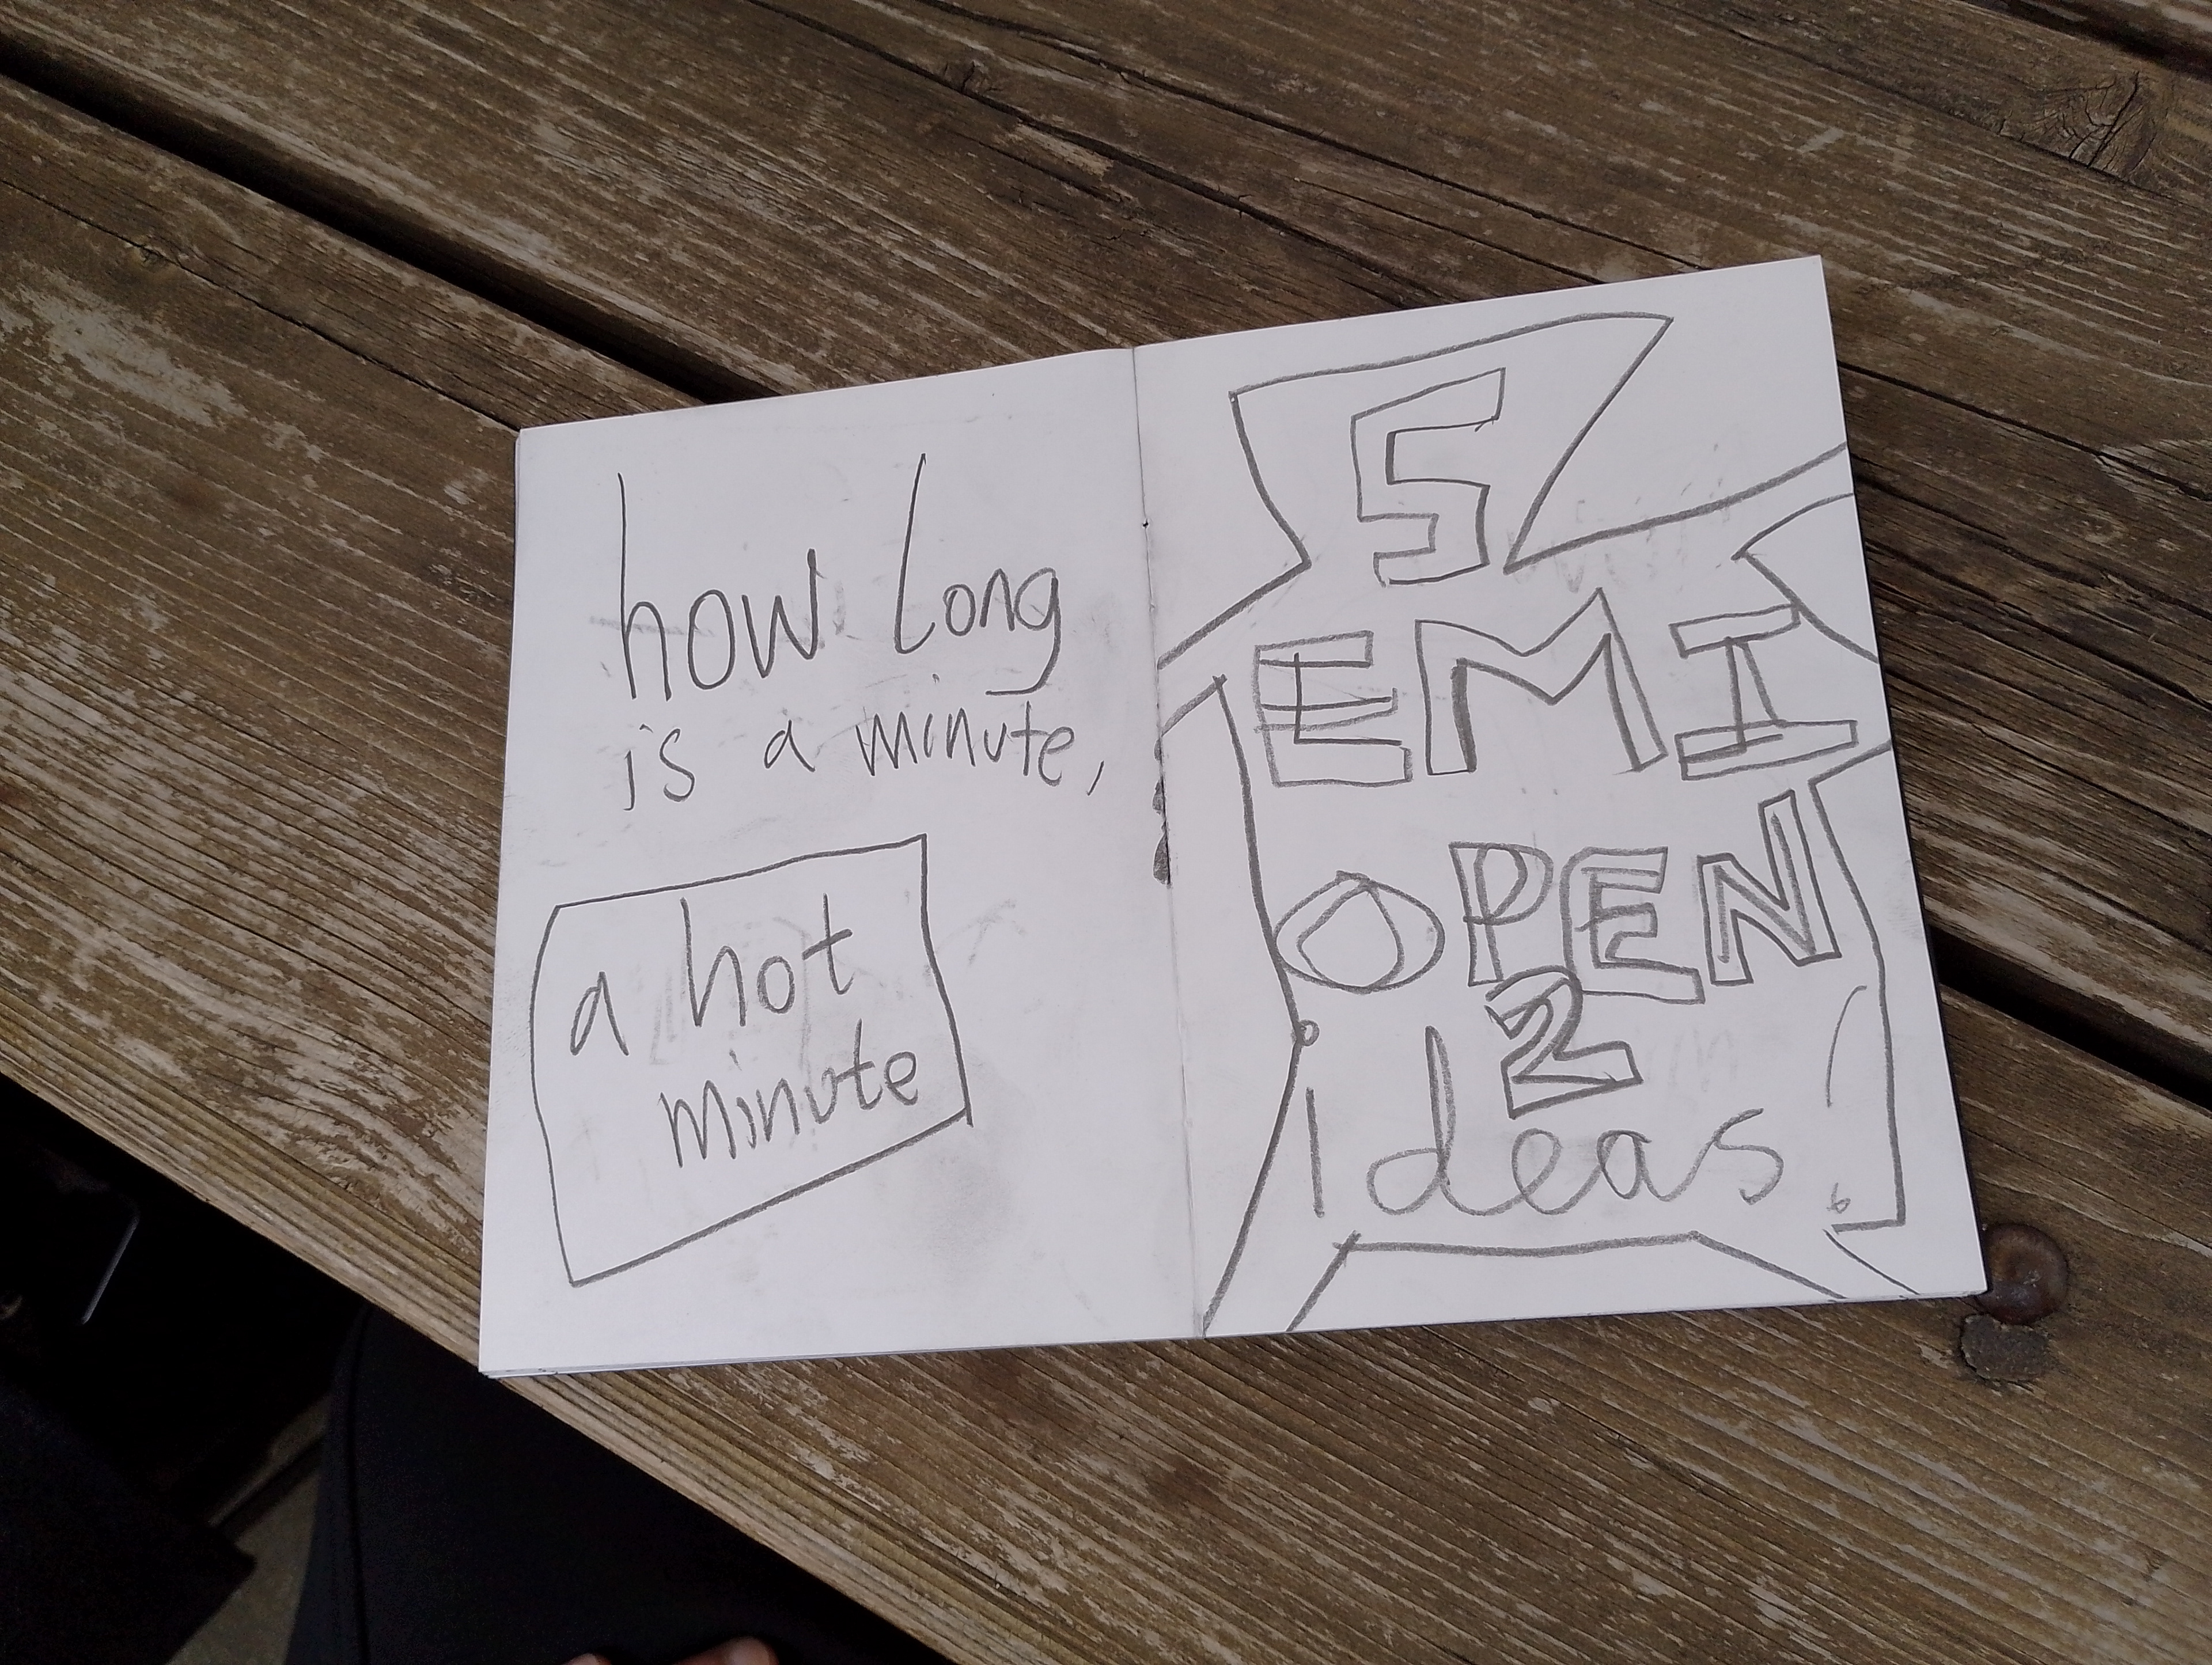 how long
is a minute,
a hot
minute
S
EMI
OPEN
2
Ideas